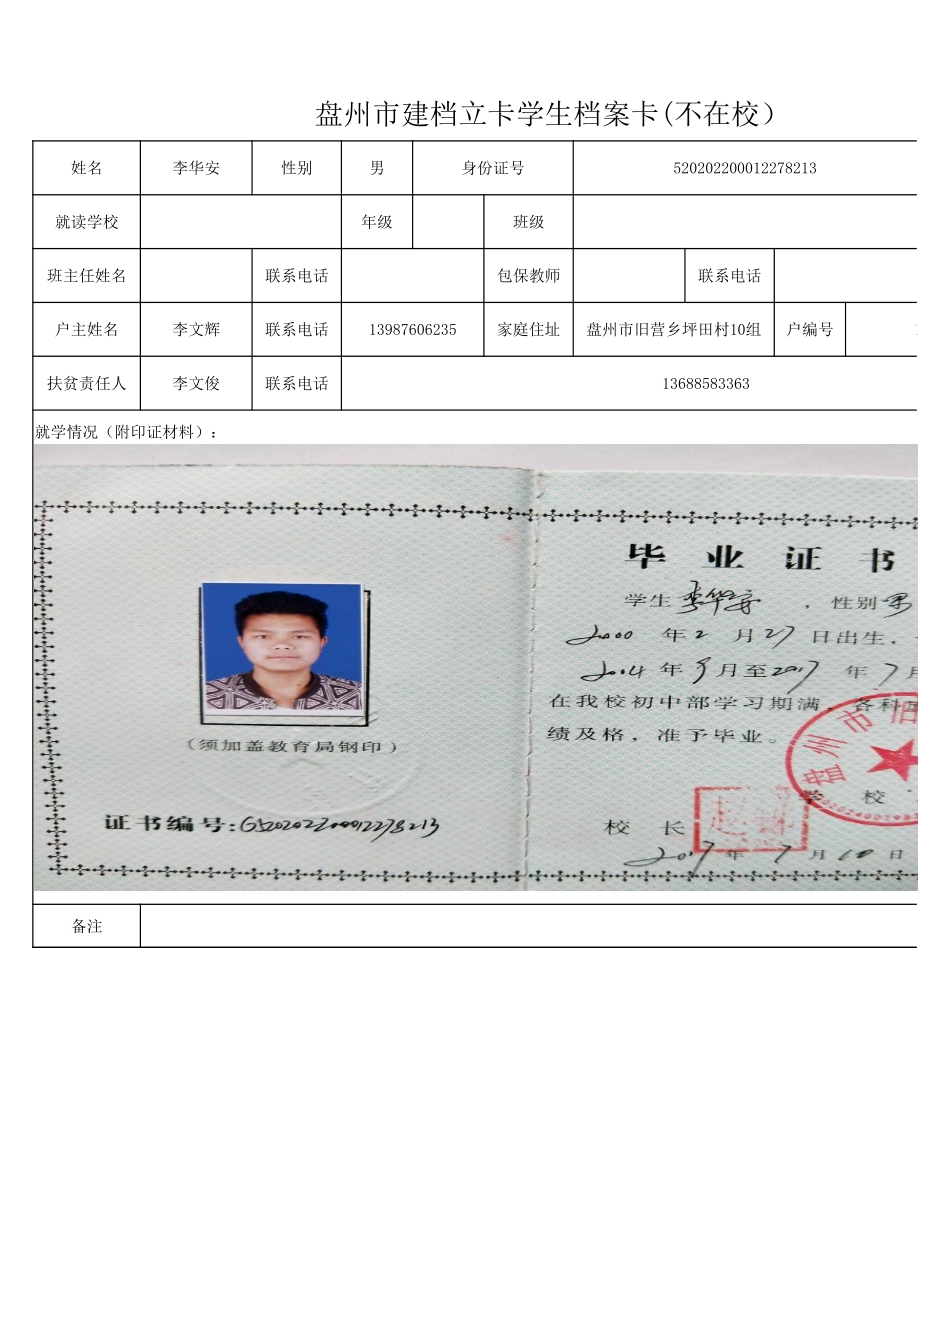 盘州市建档立卡学生档案卡(不在校）
姓名 李华安 性别 男 身份证号 520202200012278213
就读学校 年级 班级
班主任姓名 联系电话 包保教师 联系电话
户主姓名 李文辉 联系电话 13987606235 家庭住址 盘州市旧营乡坪田村10组 户编号
扶贫责任人 李文俊 联系电话 13688583363
就学情况（附印证材料）：
毕业证书
学生 李华安 ，性别 男
2000 年 2 月 27 日出生，
2014 年 9 月至 2017 年 7 月
在我校初中部学习期满，各科
绩及格，准予毕业。
（须加盖教育局钢印）
盘州市旧
学校
证书编号:G520202200012278213
校长
2017 年 7 月 10 日
备注